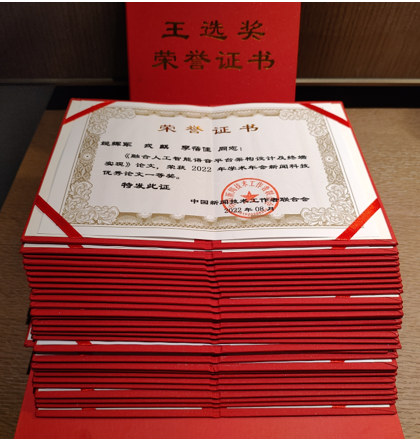 王选奖
荣誉证书
荣誉证书
《融合人工智能语音平台架构设计及终端
实现》论文，荣获 2022 年学术年会新闻科技
优秀论文一等奖。
特发此证
中国新闻技术工作者联合会
2022 年 08 月